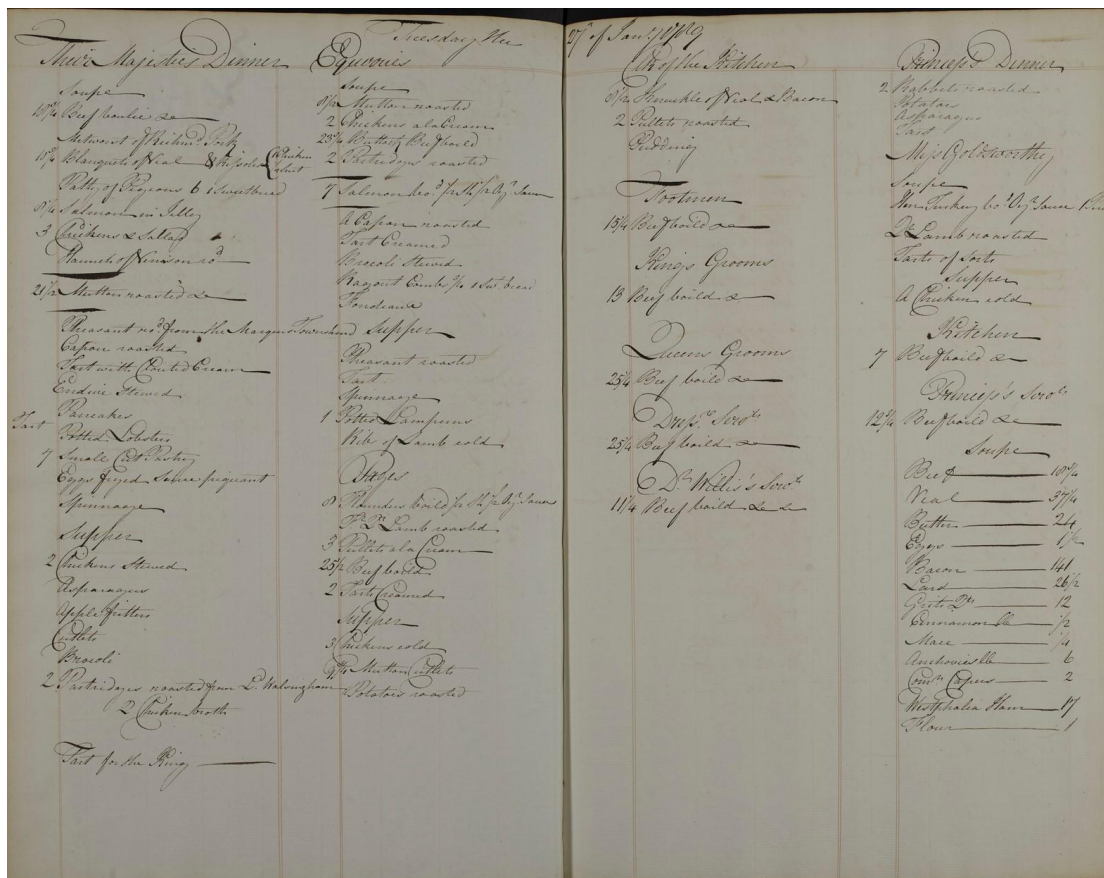 Tuesday the 27th of Jany 1789
Their Majesties Dinner
Soupe
Beef boulie &c
Metworst of Richmd Pork
Blanquets of Veal & Chicken
Patty of Pigeons 6 1 Sweetbread
Salmon in Jelley
3 Chickens & Sallad
Haunch of Venison rod
21 1/2 Mutton roasted &c
Pheasant rod from the Marquis Townshend
Capon roasted
Tart with Clouted Cream
Endive Stewed
Pancakes
Tart
Potted Lobsters
7 Small Cut Pastry
Eggs fryed Sauce piquant
Spinnage
Supper
2 Chickens Stewed
Asparagus
Apple fritters
Cutlets
Brocoli
2 Partridges roasted from Ld Walsingham
2 Chicken broth
Tart for the King
Equerries
Soupe
8 1/2 Mutton roasted
2 Chickens a la Cream
Buttock Beef boild
2 Partridges roasted
7 Salmon Sauce
A Capon roasted
Tart Creamed
Brocoli Stewed
Ragout Combs 1 Swt bread
Fondeaux
Supper
Pheasant roasted
Tart
Spinnage
1 Potted Lampurns
Ribs of Lamb cold
Pages
8 Flounders boild Sauce
Fr Qr Lamb roasted
3 Pullets a la Cream
25 1/2 Beef boild
2 Tarts Creamed
Supper
3 Chickens cold
Mutton Cutlets
Potatoes roasted
Clk of the Kitchen
8 1/2 Knuckle of Veal & Bacon
2 Pullets roasted
Pudding
Footmen
15 1/4 Beef boild &c
Kings Grooms
13 Beef boild &c
Queens Grooms
25 1/4 Beef boild &c
Dress. Servts
25 1/4 Beef boild &c
Dr Willis's Servts
11 1/4 Beef boild &c &c
Princess's Dinner
2 Rabbets roasted
Potatoes
Asparagus
Tart
Miss Goldsworthy
Soupe
Hen Turkey bod Oyr Sauce
Qr Lamb roasted
Tarts of Sorts
Supper
A Chicken cold
Kitchen
7 Beef boild &c
Princess's Servts
Beef boild &c
Soupe
Beef
Veal 37 1/4
Butter 24
Eggs 1 1/2
Bacon 141
Lard 26 1/2
Grits Qts 12
Cinnamon lb 1/2
Mace 1/4
Anchovies lb 6
Comn Capers 2
Westphalia Ham 17
Flour 1